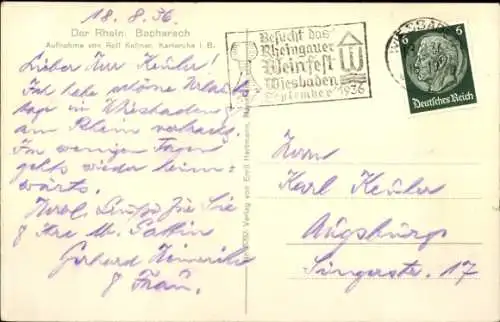 18.8.36.
Der Rhein. Bacharach
Aufnahme von Rolf Kellner, Karlsruhe i. B.
Lieber Herr Keuler!
Ich habe schöne Urlaubs
tage in Wiesbaden &
am Rhein verbracht.
In wenigen Tagen
gehts wieder heim-
wärts.
Herzl. Grüße für Sie
& Ihre Gattin
Gerhard Heinerike
& Frau.
Verlag von Emil Hartmann,
Besucht das
Rheingauer
Weinfest
Wiesbaden
September 1936
WIESBADEN
6 6
Deutsches Reich
Herrn
Karl Keuler
Augsburg
Singerstr. 17